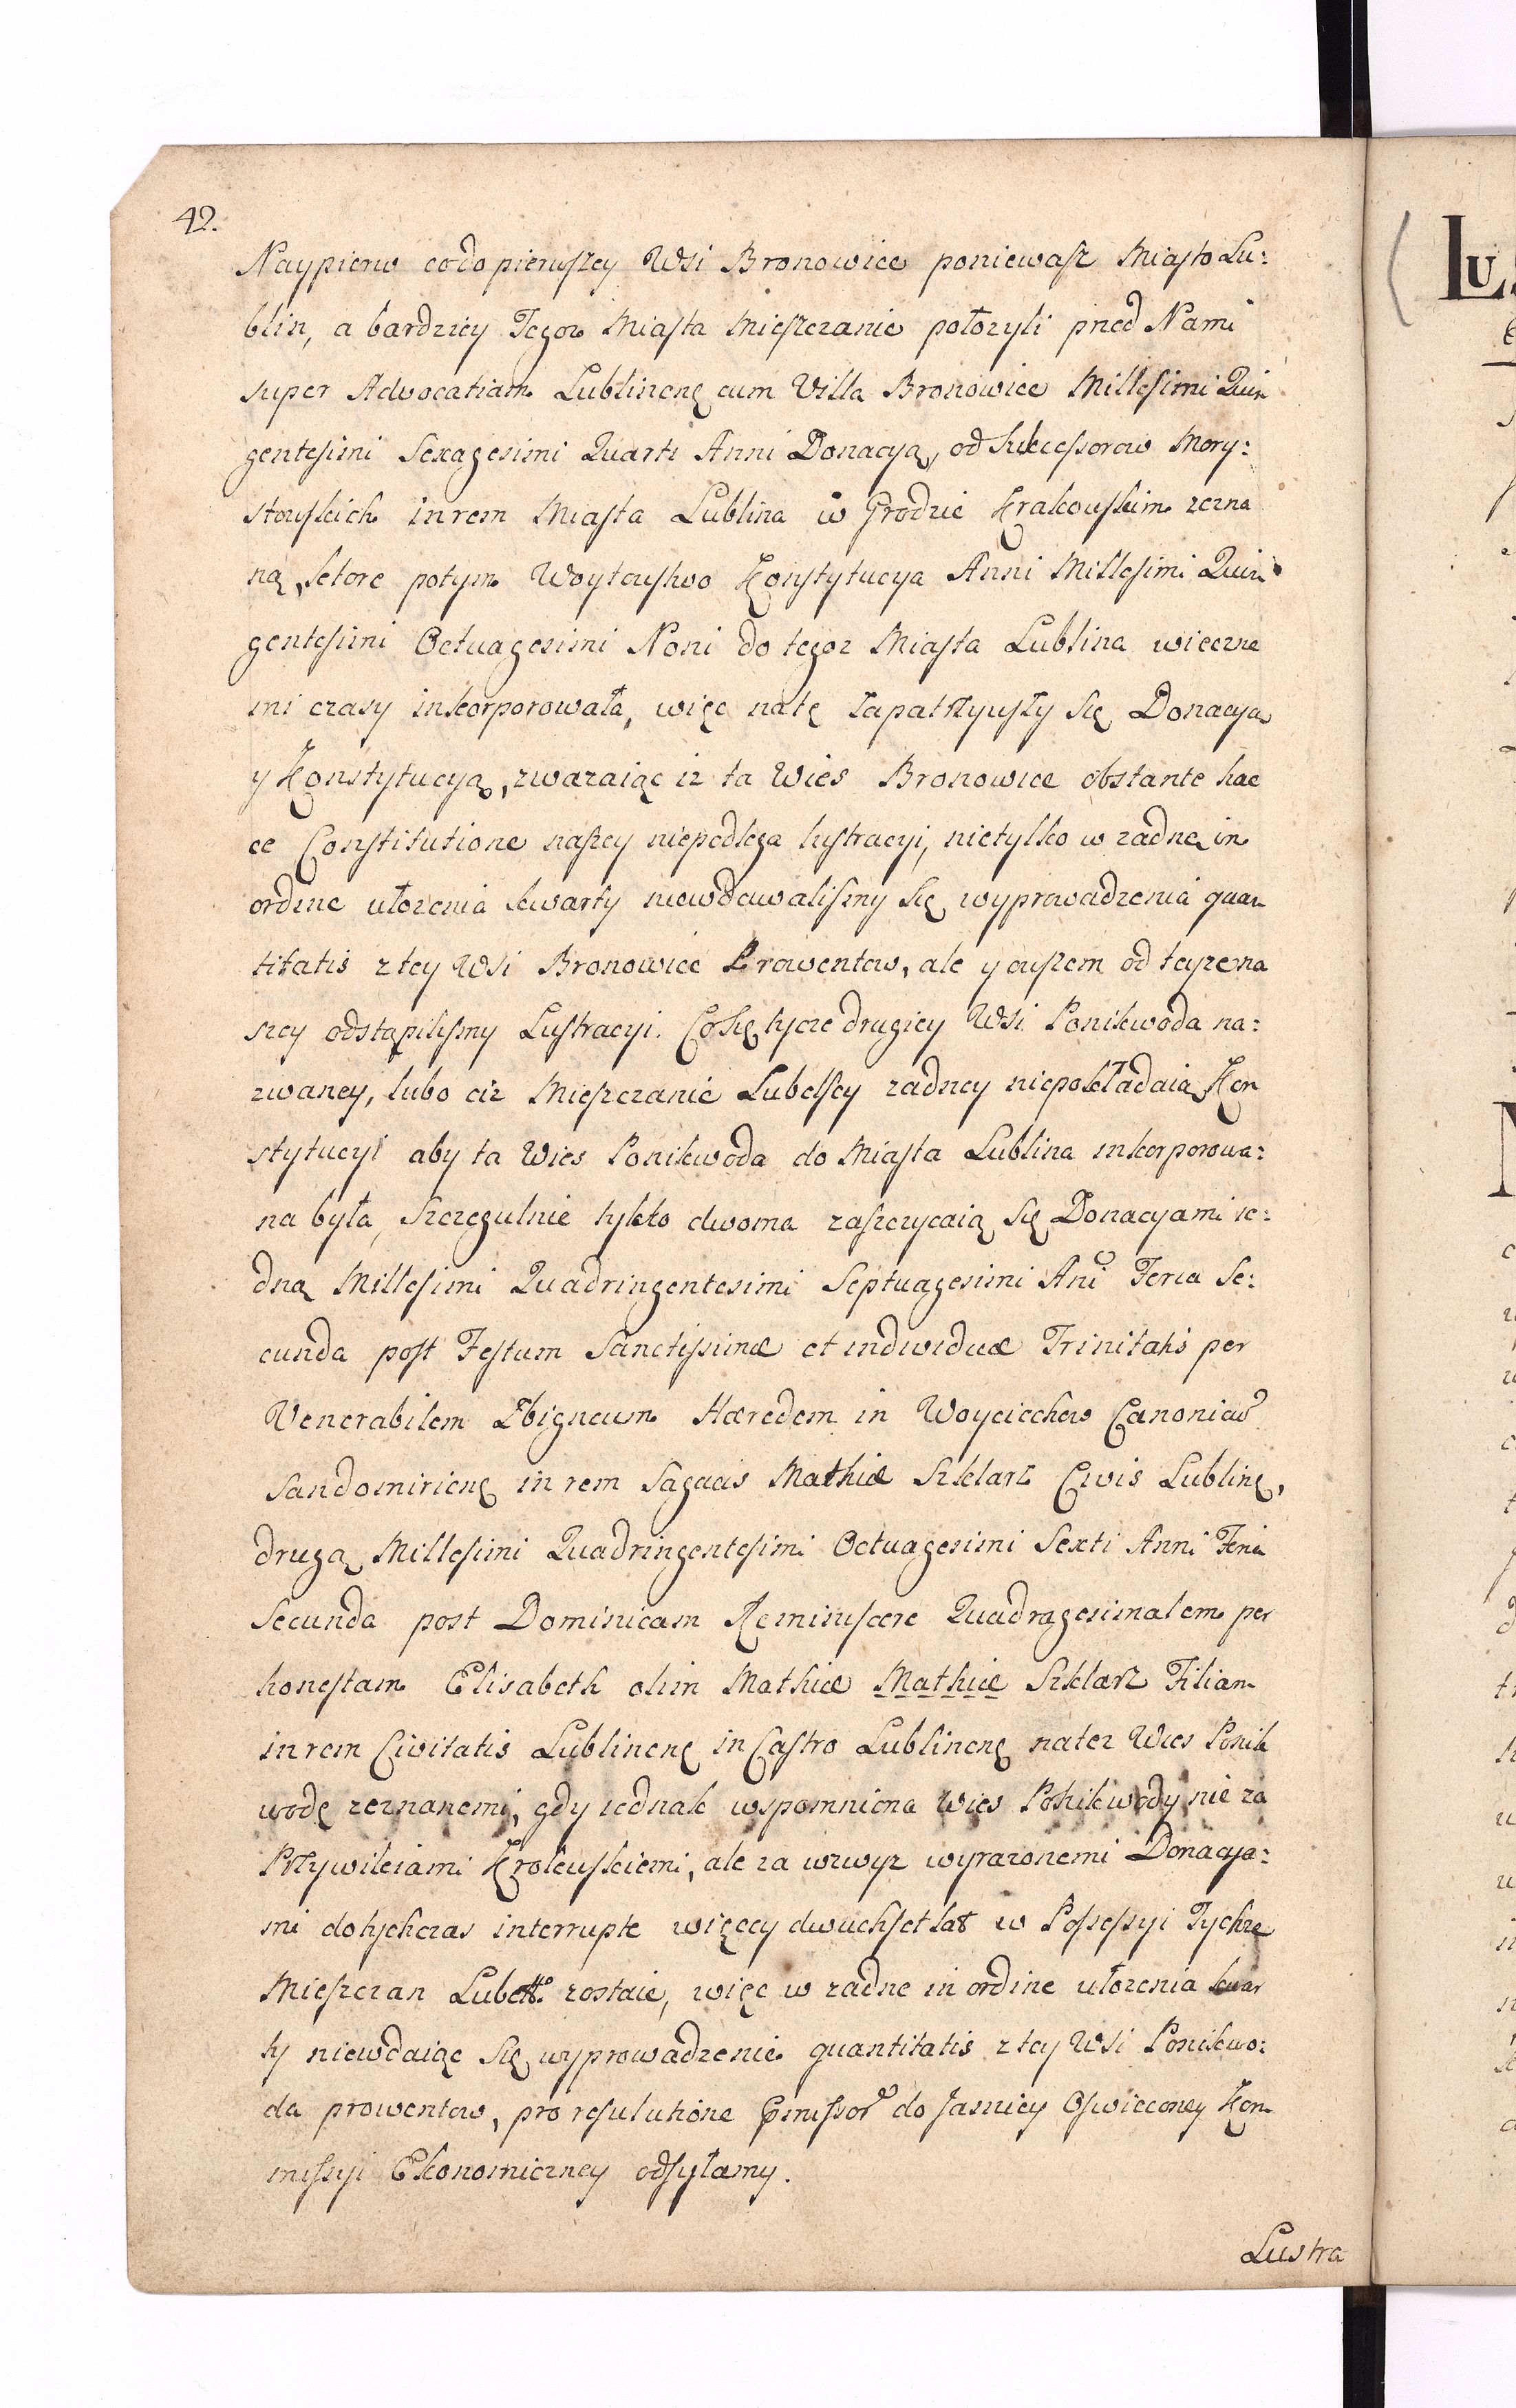 42.
Naypierw co do pierwszey Wsi Bronowice poniewasz Miasto Lu:
blin, a bardziey Tegoz Miasta Mieszczanie połozyli przed Nami
super Advocatiam Lublinenę cum Villa Bronowice Millesimi Quin
gentesimi Sexagesimi Quarti Anni Donacyą, od Sukcessorow Mory:
stowskich in rem Miasta Lublina w Grodzie Krakowskim zezna
ną, ktore potym Woytowstwo Konstytucya Anni Millesimi Quin
gentesimi Octuagesimi Noni do tegoz Miasta Lublina wieczne
mi czasy inkorporowała, więc na tę zapatrzywszy się Donacyą
y Konstytucyą, zwazaiąc iz ta Wies Bronowice obstante hac
ce Constitutione naszey niepodlega lustracyi, nietylko w zadne in
ordine ułozenia kwarty niewdawalismy się wyprowadzenia quan
titatis z tey Wsi Bronowice Prowentow, ale y owszem od teyze na
szey odstąpilismy Lustracyi. Co się tycze drugiey Wsi Ponikwoda na:
zwaney, lubo ciz Mieszczanie Lubelscy zadney niepokładaią Kon
stytucyi aby ta Wies Ponikwoda do Miasta Lublina inkorporowa:
na była, szczegulnie tylko dwoma zaszczycaią się Donacyami ie:
dną Millesimi Quadringentesimi Septuagesimi Ani Feria Se:
cunda post Festum Sanctissimæ et individuæ Trinitatis per
Venerabilem Zbigneum Hæredem in Woyciechow Canonicu
Sandomirienę in rem Sagacis Mathiæ Szklarz Civis Lublinę,
drugą Millesimi Quadringentesimi Octuagesimi Sexti Anni Feria
Secunda post Dominicam Reminiscere Quadragesimalem per
honestam Elisabeth olim Mathiæ Mathiæ Szklarz Filiam
in rem Civitatis Lublinenę in Castro Lublinenę na tez Wies Ponik
wodę zeznanemi, gdy iednak wspomniona Wies Ponikwody nie za
Przywileiami Krolewskiemi, ale za wzwyz wyrazonemi Donacya:
mi dotychczas interrupte więcey dwuchset lat w Possessyi Tychze
Mieszczan Lubel. zostaie, więc w zadne in ordine ułozenia kwar
ty niewdaiąc się wyprowadzenie quantitatis z tey Wsi Ponikwo:
da prowentow, pro resulutione do Jasniey Oswieconey Kom
missyi Ekonomiczney odsyłamy.
Lustra